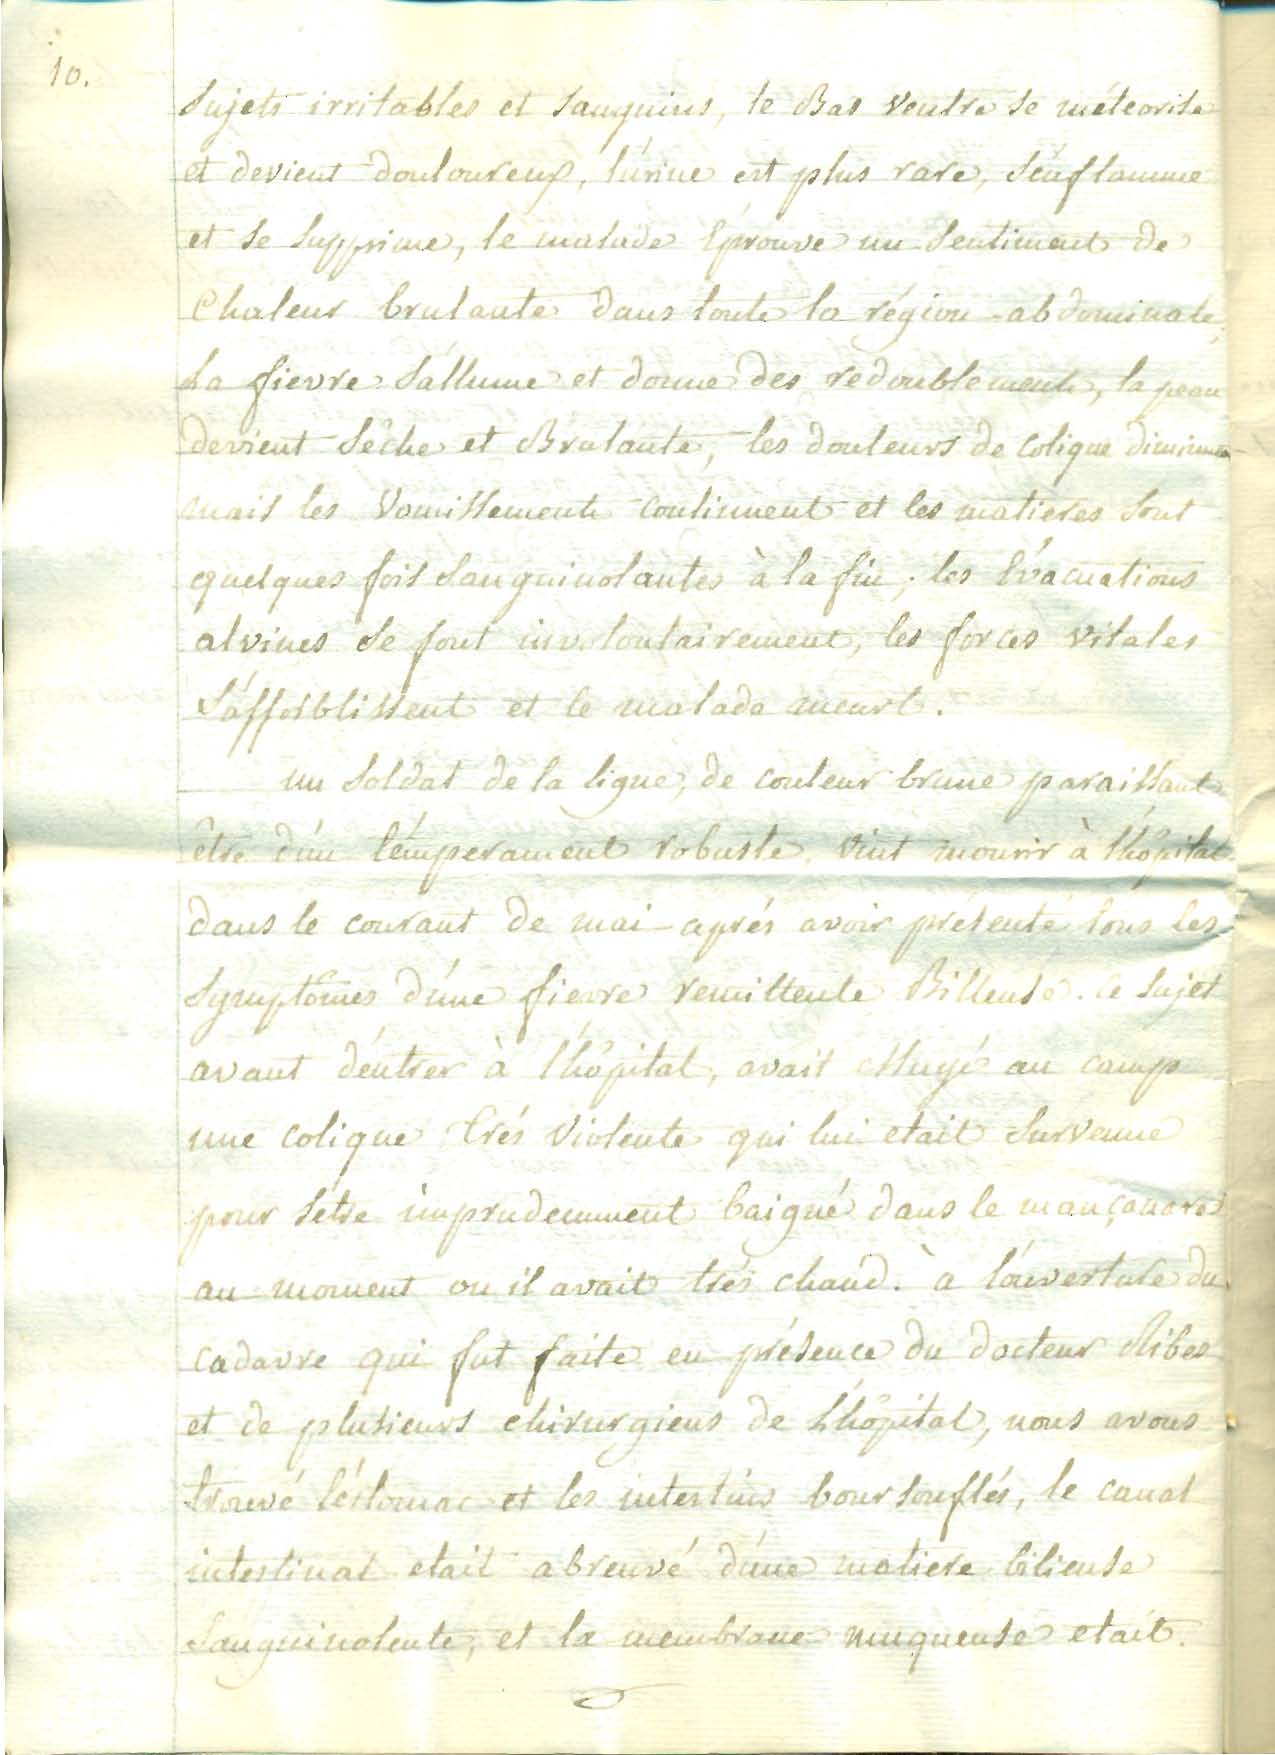 10.
Sujets irritables et Sanguins, le Bas Ventre se météorise
et devient douloureux, l'urine est plus rare, S'enflamme
et se Supprime, le malade Éprouve un Sentiment de
Chaleur brulante dans toute la région abdominale,
La fievre S'allume et donne des redoublements, la peau
devient Sêche et Brulante, les douleurs de Colique diminuen
mais les Vomissements continuent et les matieres Sont
quelques fois Sanguinolantes à la fin; les Évacuations
alvines Se font involontairement, les forces vitales
S'affoiblissent et le malade meurt.
un Soldat de la ligne, de couleur brune paraissant
être d'un témperament robuste, Vint mourir à l'hôpital
dans le courant de mai après avoir présenté tous les
Symptômes d'une fievre remittente Billeuse. Ce Sujet
avant d'entrer à l'hôpital, avait Essuyé au camp
une colique très Violente qui lui etait Survenue
pour Setre imprudemment baigné dans le mançanares
au moment ou il avait très chaud. à l'ouverture du
cadavre qui fut faite en présence du docteur Ribes
et de plusieurs chirurgiens de L'hôpital, nous avons
trouvé l'éstomac et les intestins boursouflés, le canal
intestinal etait abreuvé d'une matiere bilieuse
Sanguinolente, et la membrane muqueuse etait